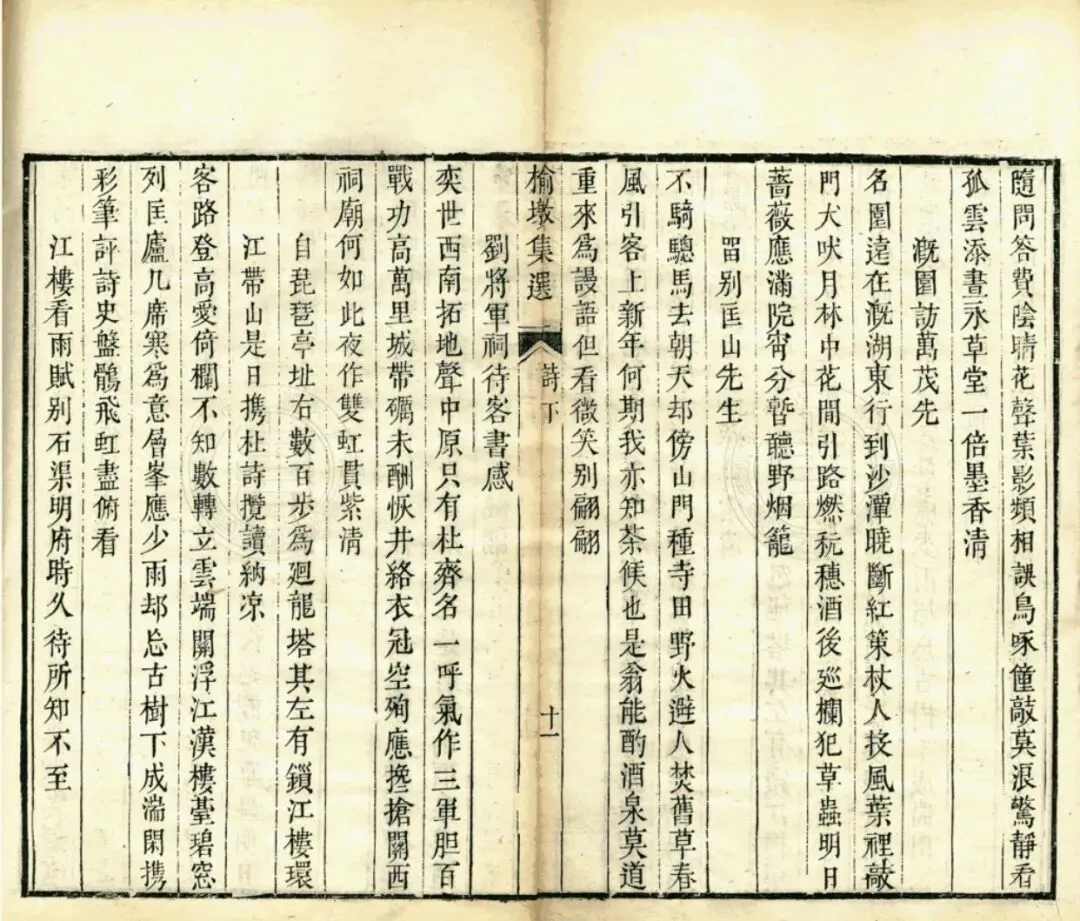 隨問答費陰晴花聲葉影頻相誤鳥啄僮敲莫浪驚靜看
孤雲添晝永草堂一倍墨香清
溉園訪萬茂先
名園遠在溉湖東行到沙潭曉斷紅策杖人投風葉裡敲
門犬吠月林中花間引路燃秔穗酒後巡欄犯草蟲明日
薔薇應滿院宵分暫聽野烟籠
畱别匡山先生
不騎驄馬去朝天却傍山門種寺田野火避人焚舊草春
風引客上新年何期我亦知茶候也是翁能酌酒泉莫道
重來為謾語但看微笑别翩翩
榆墩集選 詩下 十一
劉將軍祠待客書感
奕世西南拓地聲中原只有杜齊名一呼氣作三軍胆百
戰功高萬里城帶礪未酬恢井絡衣冠空殉應攙搶關西
祠廟何如此夜作雙虹貫紫清
自琵琶亭址右數百步為廻龍塔其左有鎖江樓環
江帶山是日携杜詩攬讀納凉
客路登高愛倚欄不知數轉立雲端關浮江漢樓臺碧窓
列匡廬几席寒為意層峯應少雨却忘古樹下成湍閑携
彩筆評詩史盤鶻飛虹盡俯看
江樓看雨賦别石渠明府時久待所知不至